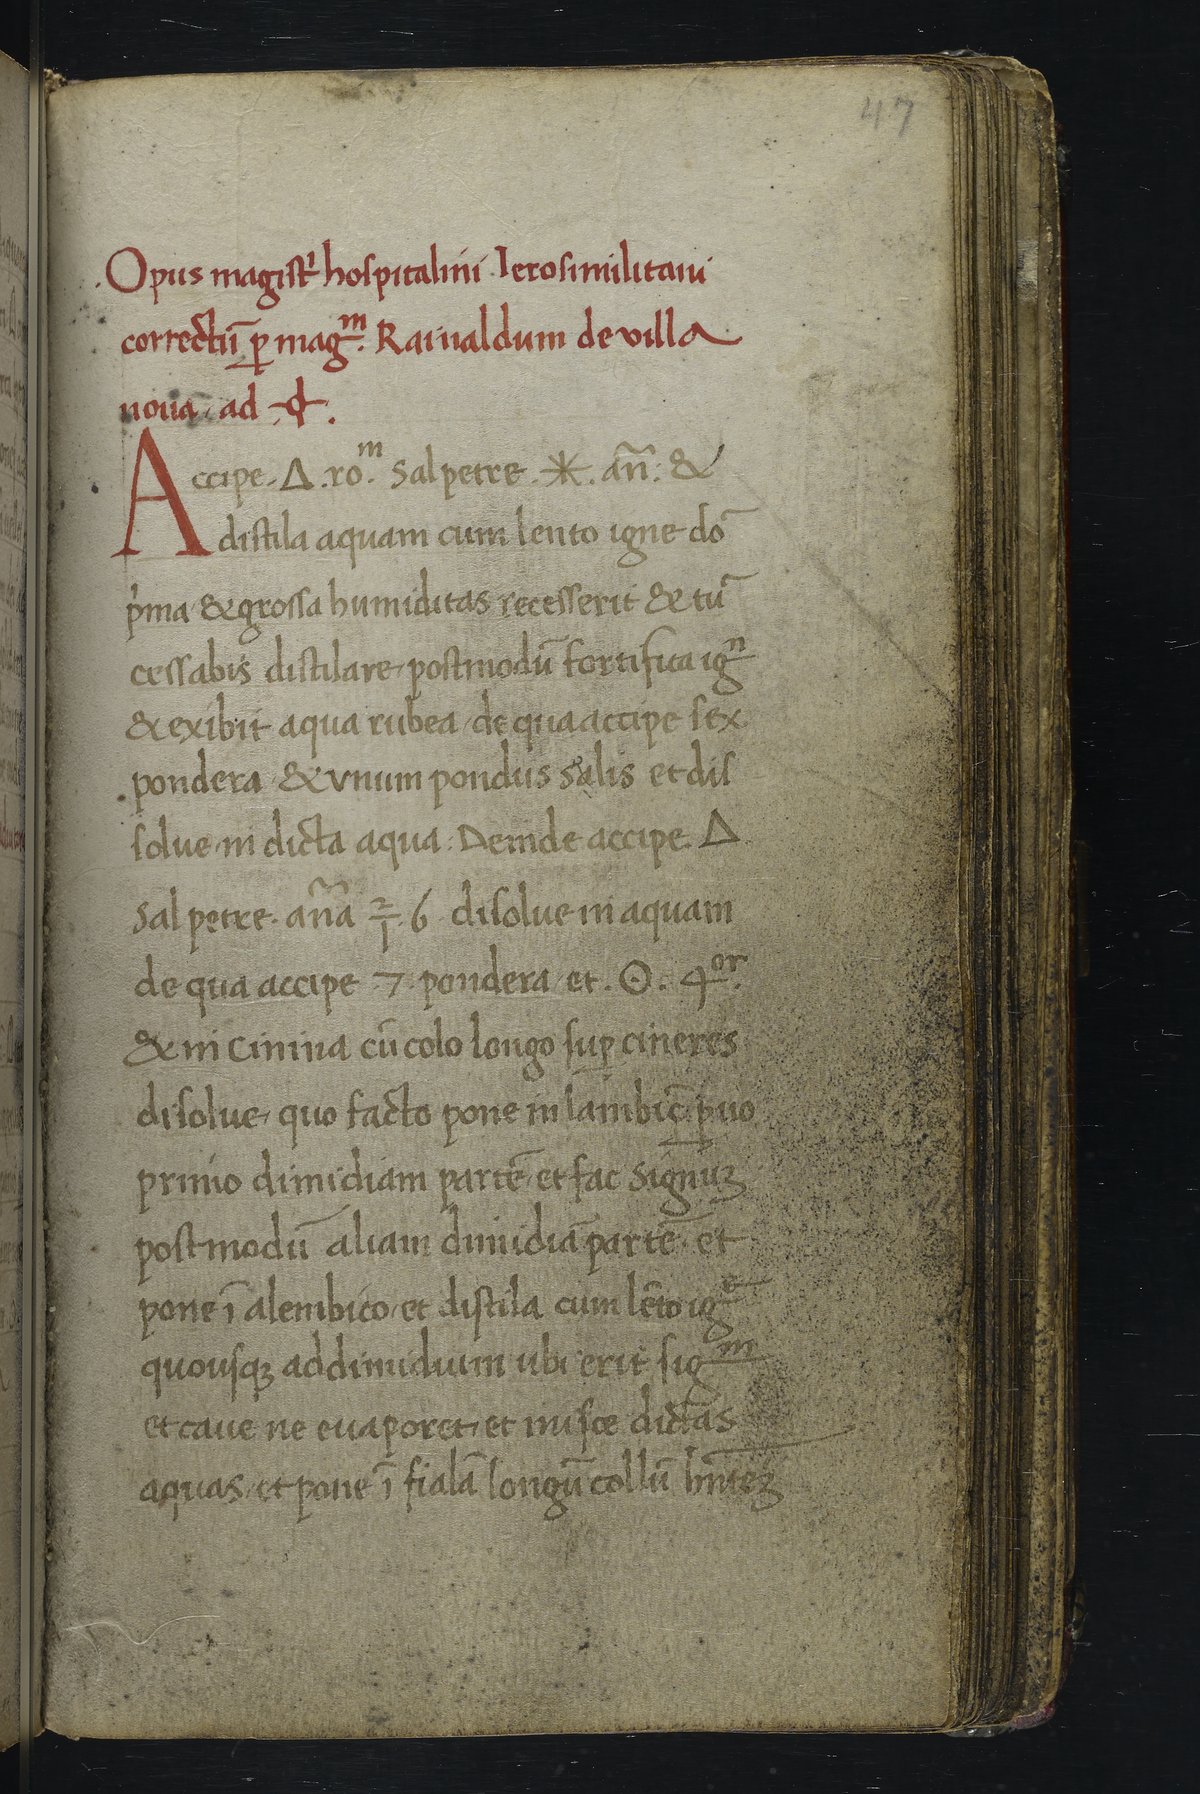 47
Opus magist̉ hospitalini Ierosimilitani
correctū ꝑ magᵐ. Rainaldum de villa
noua ad
Accipe. Δ. roᵐ. Salpetre. ✳. an̄: &
distila aquam cum lento igne do᷑
p̉ma & grossa humiditas recesserit & tū
cessabis distilare postmodū fortifica igⁿ
& exibit aqua rubea de qua accipe sex
pondera & vnum pondus salis et dis
solue in dicta aqua. Deinde accipe. Δ
Salpetre. an̄a 6 disolue in aquam
de qua accipe 7 pondera et. ☉. 4ᵒʳ.
& in cinina cū colo longo suꝑ cineres
disolue quo facto pone in lambic̄. pͥuo
primo dimidiam partē et fac signuꝫ
postmodū aliam dimidiā partē et
pone ī alembico et distila cum lēto igᵉ
quousqꝫ ad dimidium ubi erit sigᵐ
et caue ne euaporet et misce dictas
aquas et pone ī fialā longū collū hn̄teꝫ